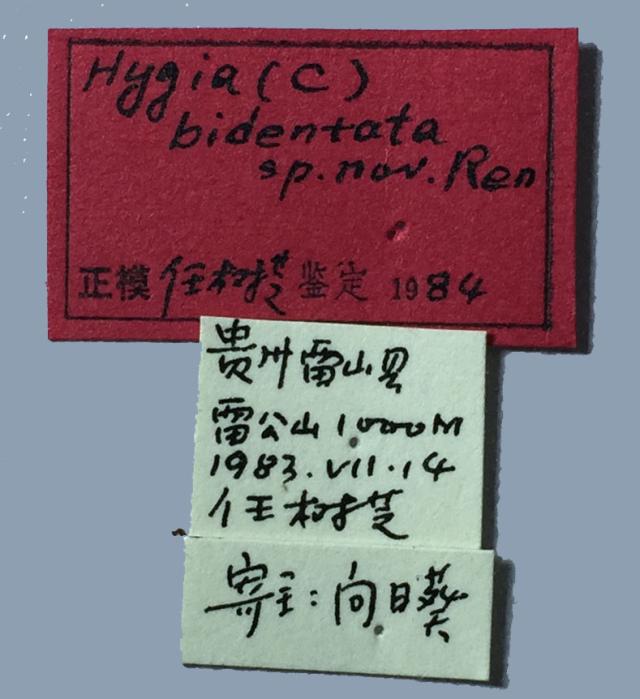 Hygia (C)
bidentata
sp. nov. Ren
正模 任树芝 鉴定 1984
贵州雷山县
雷公山 1000M
1983.VII.14
任树芝
寄主：向日葵